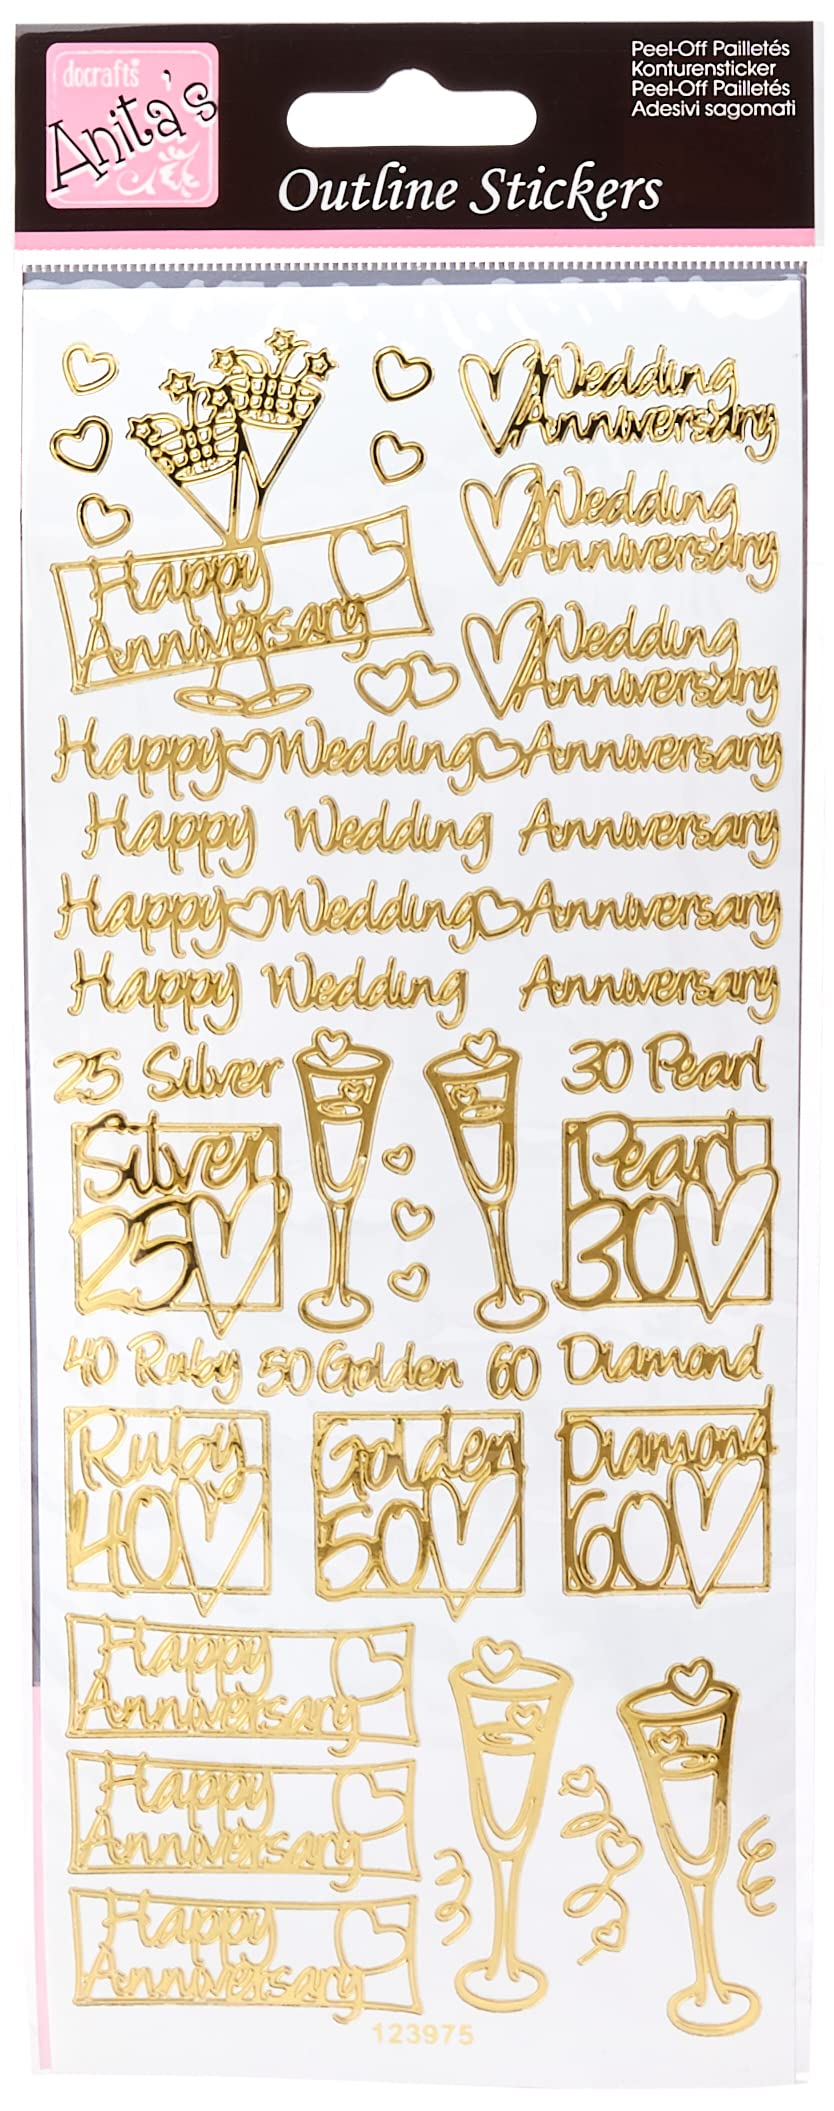 docrafts
Anita's
Peel-Off Pailletés
Konturensticker
Peel-Off Pailletés
Adesivi sagomati
Outline Stickers
Wedding
Anniversary
Wedding
Anniversary
Happy
Anniversary
Wedding
Anniversary
Happy Wedding Anniversary
Happy Wedding Anniversary
Happy Wedding Anniversary
Happy Wedding Anniversary
25 Silver
30 Pearl
Silver
25
Pearl
30
40 Ruby 50 Golden 60 Diamond
Ruby
40
Golden
50
Diamond
60
Happy
Anniversary
Happy
Anniversary
Happy
Anniversary
123975